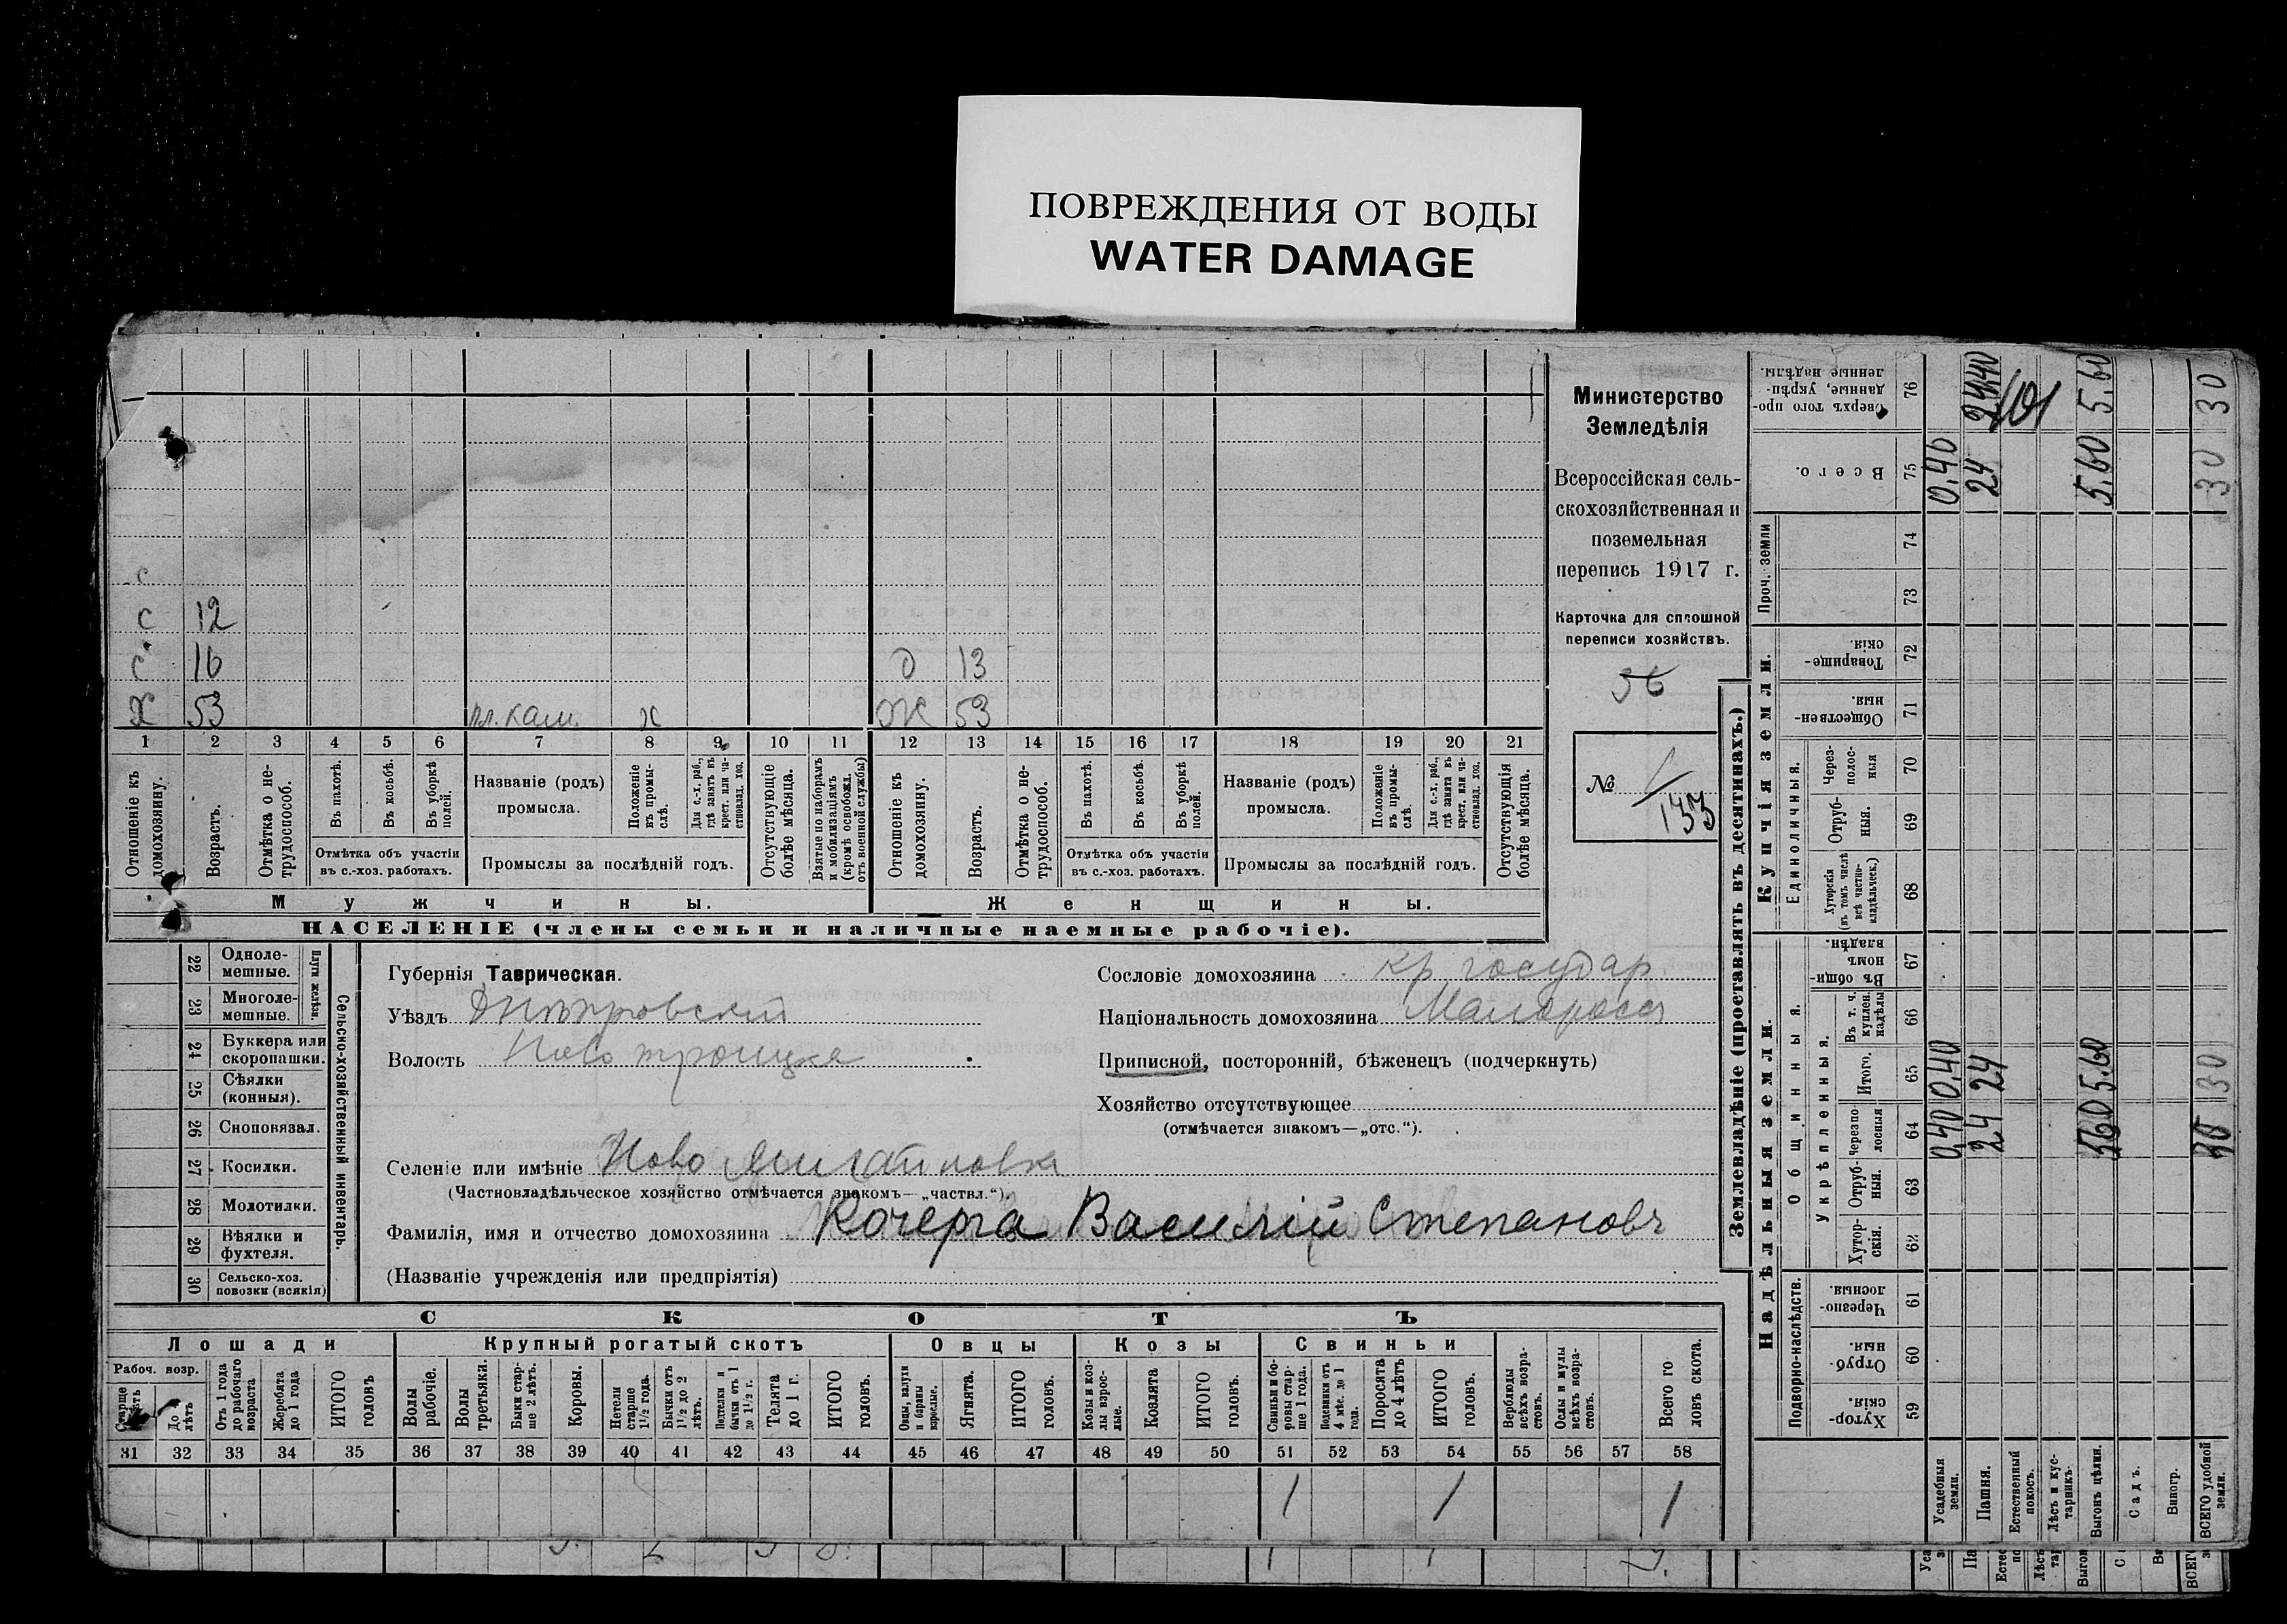 ПОВРЕЖДЕНИЯ ОТ ВОДЫ
WATER DAMAGE
с
с 12
с 16 д 13
Х 53 пл. кам. х Ж 53
1 2 3 4 5 6 7 8 9 10 11 12 13 14 15 16 17 18 19 20 21
Отношеніе къ домохозяину.
Возрастъ.
Отмѣтка о не-трудоспособ.
Въ пахотѣ.
Въ косьбѣ.
Въ уборкѣ полей.
Отмѣтка объ участіи въ с.-хоз. работахъ.
Названіе (родъ) промысла.
Положеніе въ промы-слѣ.
Для с.-х. раб., гдѣ занятъ въ крест. или ча-стновлад. хоз.
Промыслы за послѣдній годъ.
Отсутствующіе болѣе мѣсяца.
Взятые по наборамъ и мобилизаціямъ (кромѣ освобожд. отъ военной службы)
Отношеніе къ домохозяину.
Возрастъ.
Отмѣтка о не-трудоспособ.
Въ пахотѣ.
Въ косьбѣ.
Въ уборкѣ полей.
Отмѣтка объ участіи въ с.-хоз. работахъ.
Названіе (родъ) промысла.
Положеніе въ промы-слѣ.
Для с.-х. раб., гдѣ занята въ крест. или ча-стновлад. хоз.
Промыслы за послѣдній годъ.
Отсутствующія болѣе мѣсяца.
Мужчины.
Женщины.
НАСЕЛЕНІЕ (члены семьи и наличные наемные рабочіе).
Министерство
Земледѣлія
Всероссійская сель-
скохозяйственная и
поземельная
перепись 1917 г.
Карточка для сплошной
переписи хозяйствъ.
56
№ 1/133
22 Одноле-мешные.
23 Многоле-мешные.
Плуги желѣзн.
24 Буккера или скоропашки.
25 Сѣялки (конныя).
26 Сноповязал.
27 Косилки.
28 Молотилки.
29 Вѣялки и фухтеля.
30 Сельско-хоз. повозки (всякія)
Сельско-хозяйственный инвентарь.
Губернія Таврическая.
Уѣздъ Днѣпровскій
Волость Ново троицкая
Сословіе домохозяина кр государ
Національность домохозяина Малоросъ
Приписной, посторонній, бѣженецъ (подчеркнуть)
Хозяйство отсутствующее
(отмѣчается знакомъ—„отс.“).
Селеніе или имѣніе Ново
(Частновладѣльческое хозяйство отмѣчается знакомъ—„частвл.“).
Фамилія, имя и отчество домохозяина Кочерга Василій Степановъ
(Названіе учрежденія или предпріятія)
СКОТЪ
Лошади
Крупный рогатый скотъ
Овцы
Козы
Свиньи
Рабоч. возр.
Старше лѣтъ
До лѣтъ
Отъ 1 года до рабочаго возраста
Жеребята до 1 года
ИТОГО головъ
Волы рабочіе.
Волы третьяки.
Быки стар-ше 2 лѣтъ.
Коровы.
Нетели старше 1½ года.
Бычки отъ 1½ до 2 лѣтъ.
Подтелки и бычки отъ 1 до 1½ г.
Телята до 1 г.
ИТОГО головъ.
Овцы, валухи и бараны взрослые.
Ягнята.
ИТОГО головъ.
Козы и коз-лы взрос-лые.
Козлята
ИТОГО головъ.
Свиньи и бо-ровы стар-ше 1 года.
Подсвинки отъ 4 мѣс. до 1 года.
Поросята до 4 лѣтъ
ИТОГО головъ.
Верблюды всѣхъ возра-стовъ.
Ослы и мулы всѣхъ возра-стовъ.
Всего го ловъ скота.
31 32 33 34 35 36 37 38 39 40 41 42 43 44 45 46 47 48 49 50 51 52 53 54 55 56 57 58
1 1 1
Землевладѣніе (проставлять въ десятинахъ.)
Надѣльныя земли.
Купчія земли.
Проч. земли
Подворно-наслѣдств.
Общинныя.
Укрѣпленныя.
Единоличныя.
Сверхъ того про-данные, укрѣп-ленные надѣлы. 76 24.40 101 5.60 30
Всего. 75 0.40 24 5.60 30
74
73
Товарище-скія. 72
Обществен-ныя. 71
Через-полос-ныя 70
Отруб-ныя. 69
Хуторскія (въ томъ числѣ всѣ частно-владѣльческ.) 68
Въ общи-номъ владѣн. 67
Въ т. ч. куплен. надѣлы 66
Итого. 65 0.40 24 5.60 30
Черезпо-лосныя 64 0.40 24 5.60 30
Отруб-ныя. 63
Хутор-скія. 62
Черезпо-лосныя. 61
Отруб-ныя. 60
Хутор-скія. 59
Усадебныя земли.
Пашня.
Естественный покосъ.
Лѣсъ и кус-тарникъ.
Выгонъ цѣлин.
Садъ.
Виногр.
ВСЕГО удобной земли.